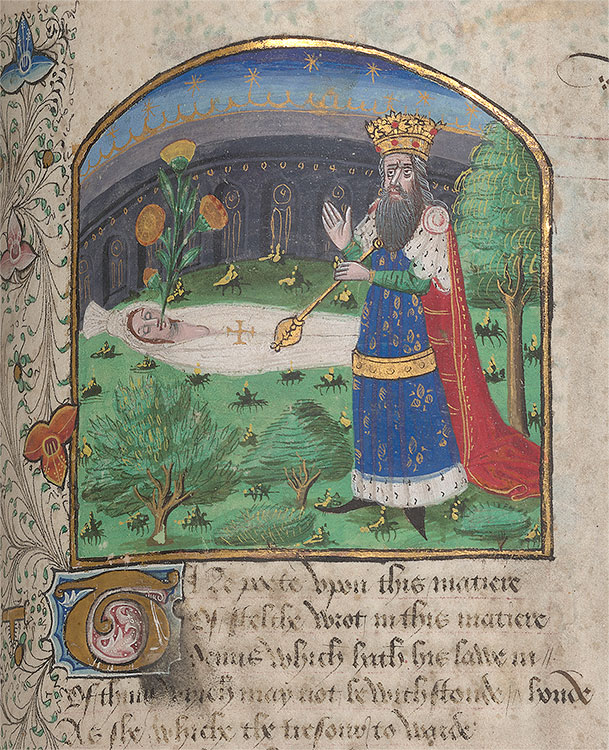 The poete upon this matiere
Of stelthe wrot in this matiere
Venus which hath his lawe in //
Of thing which may not be withstonde // honde
As she whiche the tresour to warde